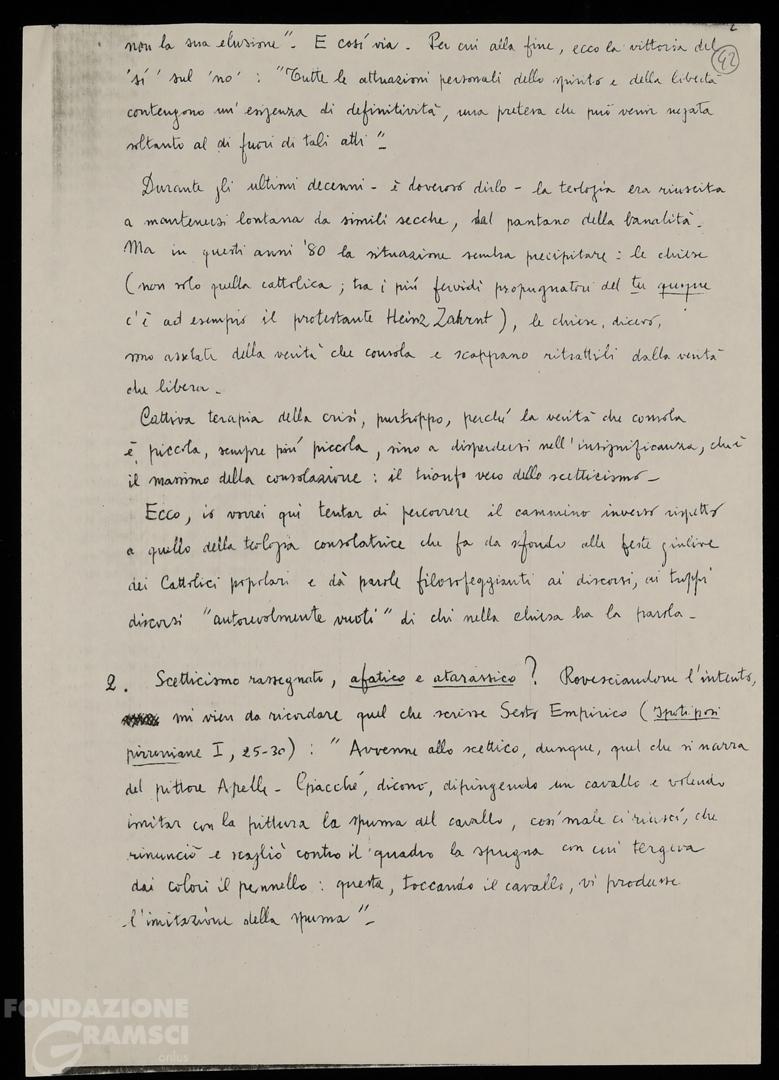 2
42
non la sua elusione". E così via. Per cui alla fine, ecco la vittoria del
'sì' sul 'no': "Tutte le attuazioni personali dello spirito e della libertà
contengono un'esigenza di definitività, una pretesa che può venir negata
soltanto al di fuori di tali atti".
Durante gli ultimi decenni - è doveroso dirlo - la teologia era riuscita
a mantenersi lontana da simili secche, dal pantano della banalità.
Ma in questi anni '80 la situazione sembra precipitare: le chiese
(non solo quella cattolica; tra i più fervidi propugnatori del tu quoque
c'è ad esempio il protestante Heinz Zahrnt), le chiese, dicevo,
sono assetate della verità che consola e scappano ritrattili dalla verità
che libera.
Cattiva terapia della crisi, purtroppo, perché la verità che consola
è piccola, sempre più piccola, sino a disperdersi nell'insignificanza, che è
il massimo della consolazione: il trionfo vero dello scetticismo.
Ecco, io vorrei qui tentar di percorrere il cammino inverso rispetto
a quello della teologia consolatrice che fa da sfondo alle feste giulive
dei Cattolici popolari e dà parole filosofeggianti ai discorsi, ai troppi
discorsi "autorevolmente vuoti" di chi nella chiesa ha la parola.
2. Scetticismo rassegnato, afatico e atarassico? Rovesciandone l'intento,
mi vien da ricordare quel che scrisse Sesto Empirico (Ipotiposi
pirroniane I, 25-30): "Avvenne allo scettico, dunque, quel che si narra
del pittore Apelle. Giacché, dicono, dipingendo un cavallo e volendo
imitar con la pittura la spuma del cavallo, così male ci riuscì, che
rinunciò e scagliò contro il quadro la spugna con cui tergeva
dai colori il pennello: questa, toccando il cavallo, vi produsse
l'imitazione della spuma".
FONDAZIONE
GRAMSCI
onlus